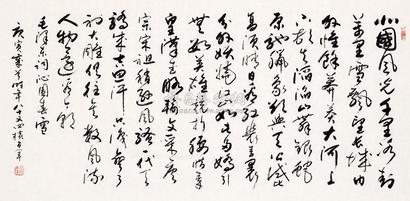 北國風光千里冰封
萬里雪飄望長城內
外惟餘莽莽大河上
下頓失滔滔山舞銀蛇
原馳蠟象欲與天公試比
高須晴日看紅裝素裹
分外妖嬈江山如此多嬌引
無數英雄競折腰惜秦
皇漢武略輸文采唐
宗宋祖稍遜風騷一代天
驕成吉思汗只識彎弓
射大雕俱往矣數風流
人物還看今朝
毛澤東詞沁園春雪
庚寅時年八十又四